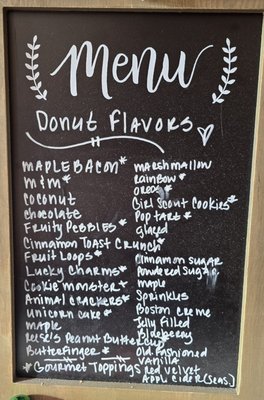 Menu
Donut Flavors
MAPLE BACON*
m&m*
coconut
chocolate
Fruity Pebbles*
Cinnamon Toast Crunch*
Fruit Loops*
Lucky Charms*
Cookie monster*
Animal crackers*
Unicorn cake*
maple
Reese's Peanut Buttercup
Butterfinger*
*Gourmet Toppings
marshmallow
rainbow*
oreos*
Girl Scout Cookies*
Pop tart*
glazed
Cinnamon sugar
Powdered sugar
maple
Sprinkles
Boston creme
Jelly Filled
Blueberry
Old Fashioned
vanilla
red velvet
Appl Cider (Seas)